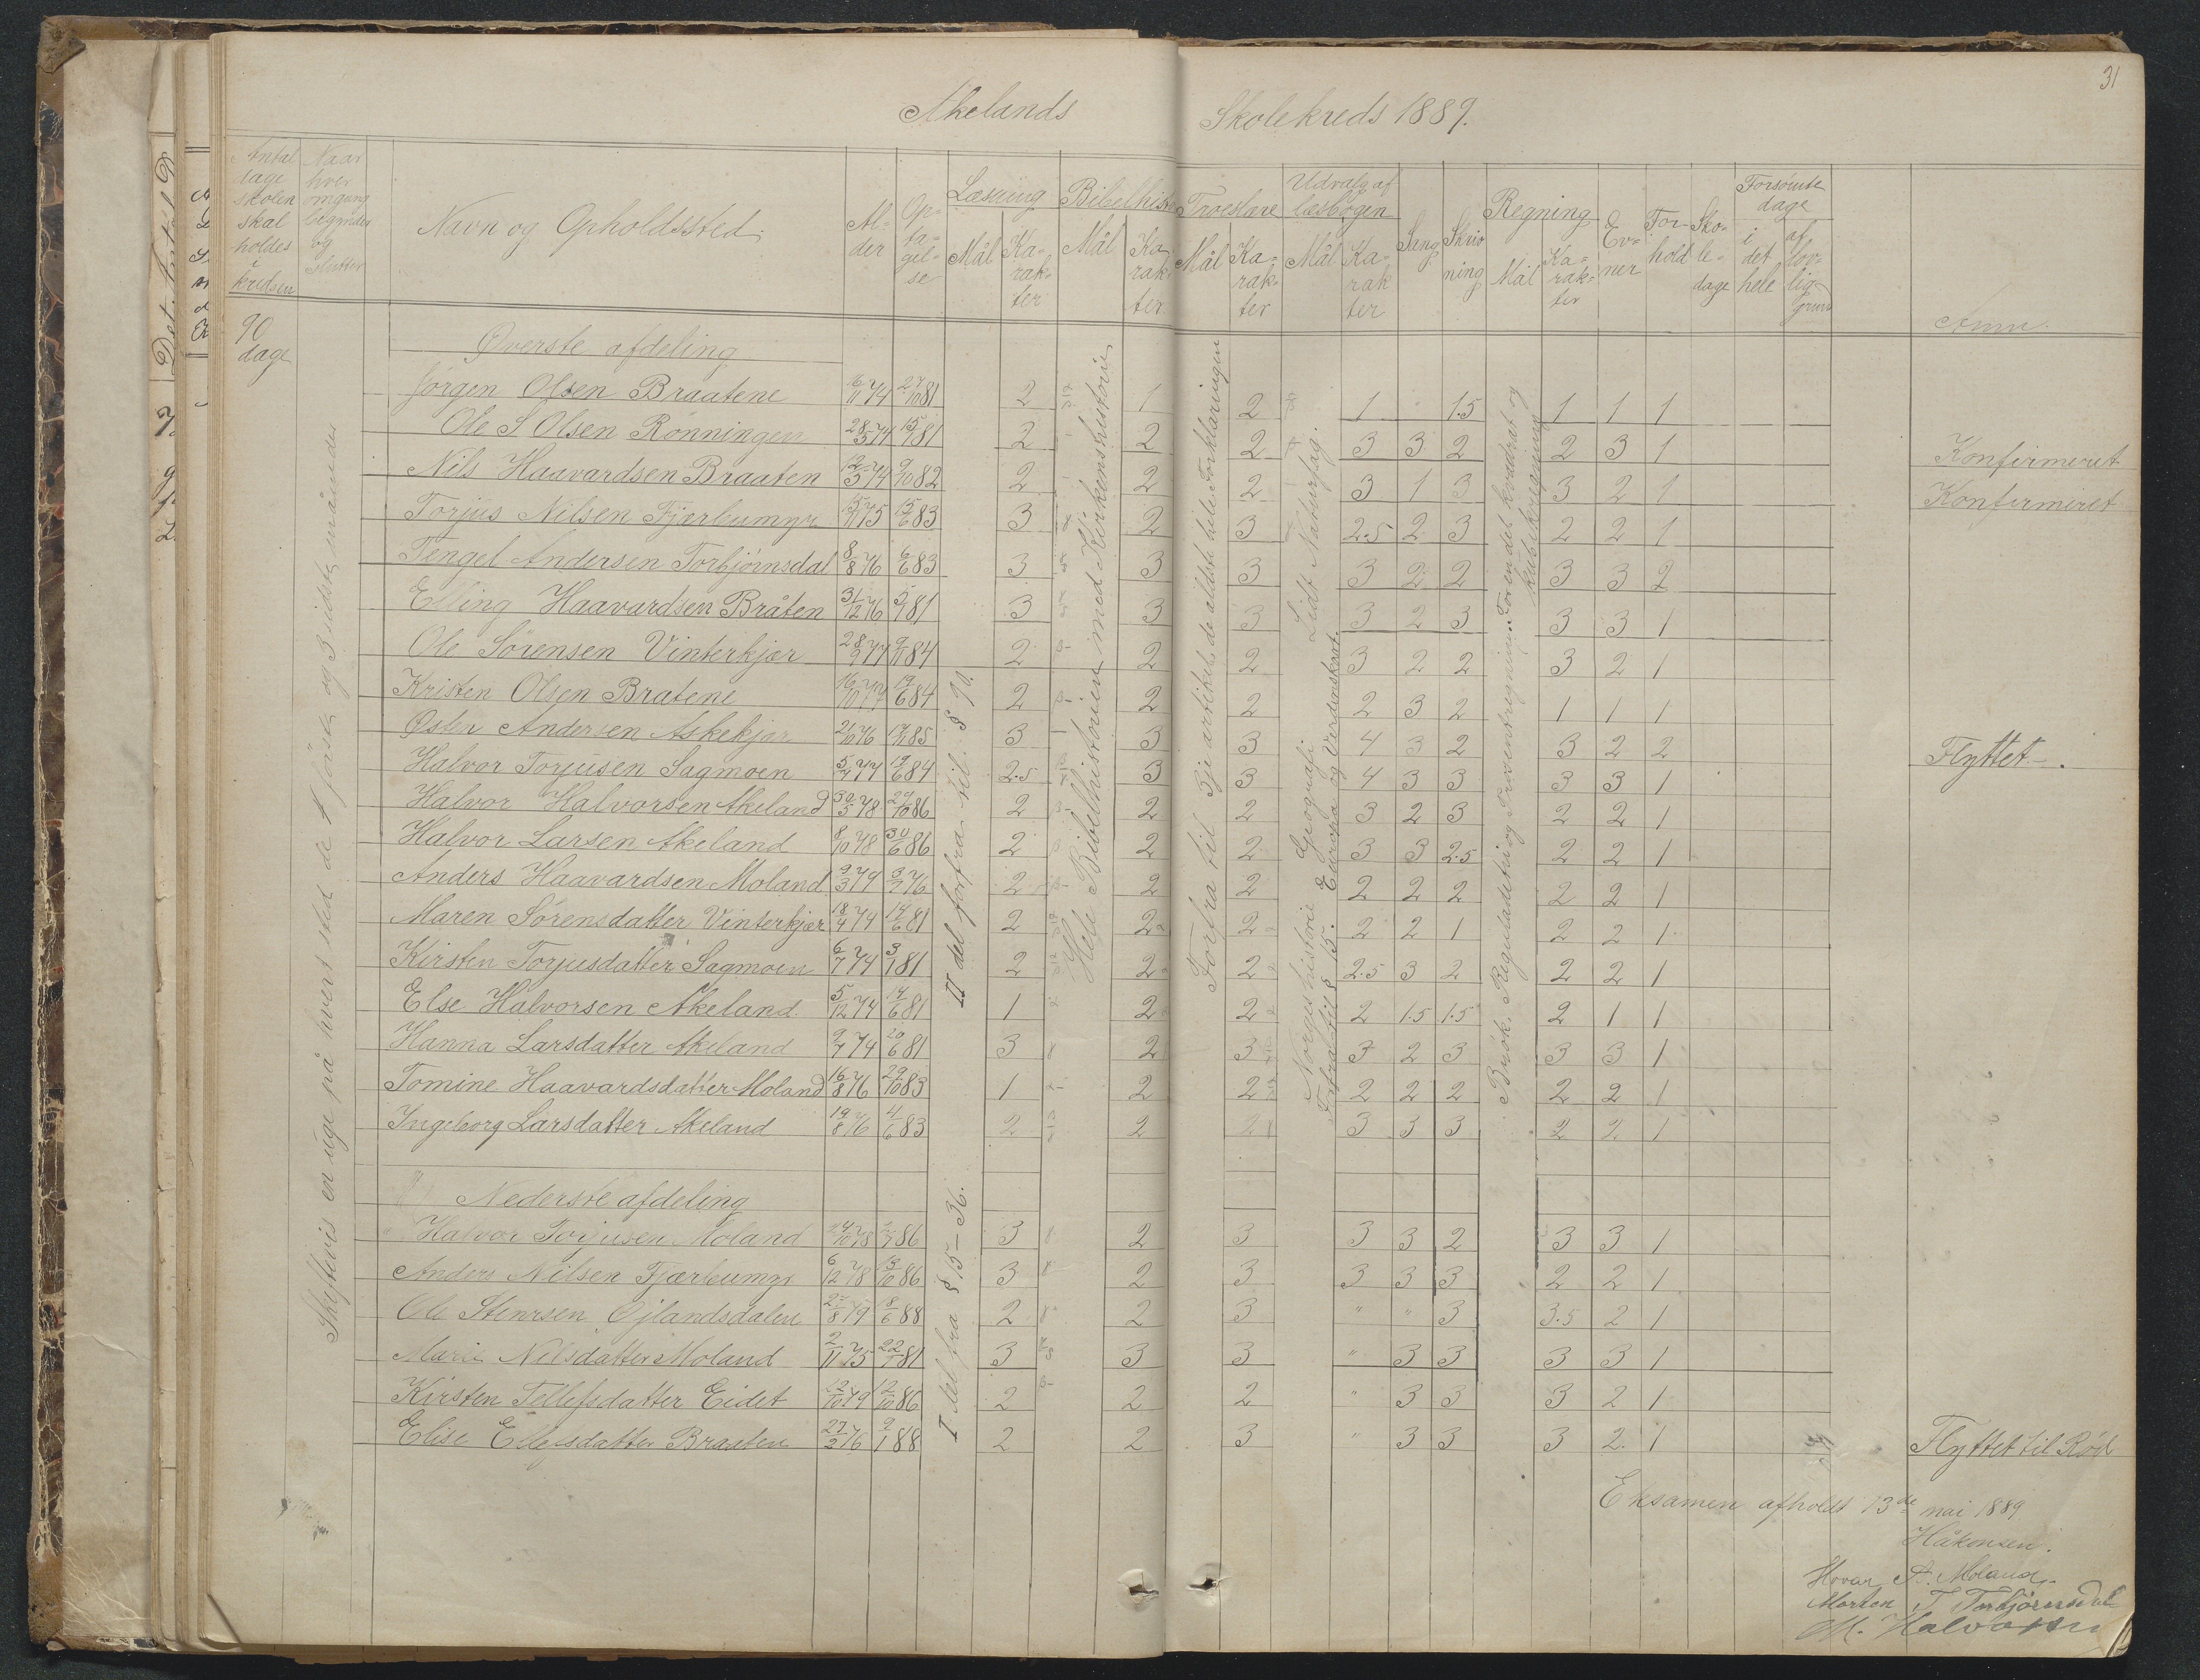 31
Akelands Skolekreds 1889.
Antal dage skolen skal holdes i kredsen
Naar hver omgang begynder og slutter
Navn og Opholdssted.
Al-der
Op-ta-gel-se
Læsning Mål Ka-rak-ter
Bibelhist Mål Ka-rak-ter
Troeslære Mål Ka-rak-ter
Udvalg af læsbogen Mål Ka-rak-ter
Sang
Skriv-ning
Regning Mål Ka-rak-ter
Ev-ner
For-hold
Sko-le-dage
Forsømte dage i det hele af lov-lig grund
Anm.
90 dage
Skiftevis en uge på hvert sted de 4 første og 3 sidste måneder
II del forfra til § 90.
I del fra § 15-36.
Hele Bibelhistorien med Kirkens historie
Forfra til 3je artikel, de aldste hele Forklaringen
Norgeshistorie Geografi Lidt Naturfag.
Forfra til § 15. Europa og Verdenskart.
Brøk, Reguladetri og Prosentregning. For en del kvadrat og kubikregning
Øverste afdeling
Jørgen Olsen Braatene 16/11 74 27/10 81 2 1 2 1 1.5 1 1 1
Ole S Olsen Rønningen 28/5 74 15/7 81 2 2 2 3 3 2 2 3 1 Konfirmeret
Nils Haavardsen Braaten 12/3 74 9/10 82 2 2 2 3 1 3 3 2 1 Konfirmeret
Torjus Nilsen Fjærbumyr 15/11 75 15/6 83 3 2 3 2.5 2 3 2 2 1
Tengel Andersen Torbjørnsdal 8/8 76 6/6 83 3 3 3 3 2 2 3 3 2
Elling Haavardsen Bråten 31/12 76 5/9 81 3 3 3 3 2 3 3 3 1
Ole Sørensen Vinterkjær 28/9 77 9/11 84 2 2 2 3 2 2 3 2 1
Kristen Olsen Bratene 16/10 77 19/6 84 2 2 2 2 3 2 1 1 1
Østen Andersen Askekjær 3 3 3 4 3 2 3 2 2 Flyttet.
Halvor Torjusen Sagmoen 5/4 77 19/6 84 2.5 3 3 4 3 3 3 3 1
Halvor Halvorsen Akeland 30/5 78 29/10 86 2 2 2 3 2 3 2 2 1
Halvor Larsen Akeland 8/10 78 30/6 86 2 2 2 3 3 2.5 2 2 1
Anders Haavardsen Moland 9/3 74 3/7 76 2 2 2 2 2 2 2 2 1
Maren Sørensdatter Vinterkjær 18/4 74 14/6 81 2 2 2 2 2 1 2 2 1
Kirsten Torjusdatter Sagmoen 6/7 74 3/1 81 2 2 2 2.5 3 2 2 2 1
Else Halvorsen Akeland 5/12 74 14/6 81 1 2 2 2 1.5 1.5 2 1 1
Hanna Larsdatter Akeland 9/7 74 20/6 81 3 2 3 3 2 3 3 3 1
Tomine Haavardsdatter Moland 16/8 76 29/10 83 1 2 2 2 2 2 2 2 1
Ingeborg Larsdatter Akeland 19/8 76 4/6 83 2 2 2 3 3 3 2 2 1
Nederste afdeling
Halvor Torjusen Moland 24/10 78 86 3 2 3 3 3 2 3 3 1
Anders Nilsen Fjærbumyr 6/12 78 13/10 86 3 2 3 3 3 3 2 2 1
Ole Stenrsen Øjlandsdalen 79 8/6 88 2 2 3 " " 3 3.5 2 1
Marie Nilsdatter Moland 2/11 75 22/7 81 3 3 3 " 3 3 3 3 1
Kirsten Tellefsdatter Eidet 12/10 79 12/10 86 2 2 2 " 3 3 3 2 1
Elise Ellefsdatter Braaten 27/2 76 9/1 88 2 2 3 " 3 3 3 2 1 Flyttet til Rød
Eksamen afholdt 13de mai 1889
Håkonsen.
Hovar A. Moland.
Morten T Torbjørnsdal
M. Halvorsen